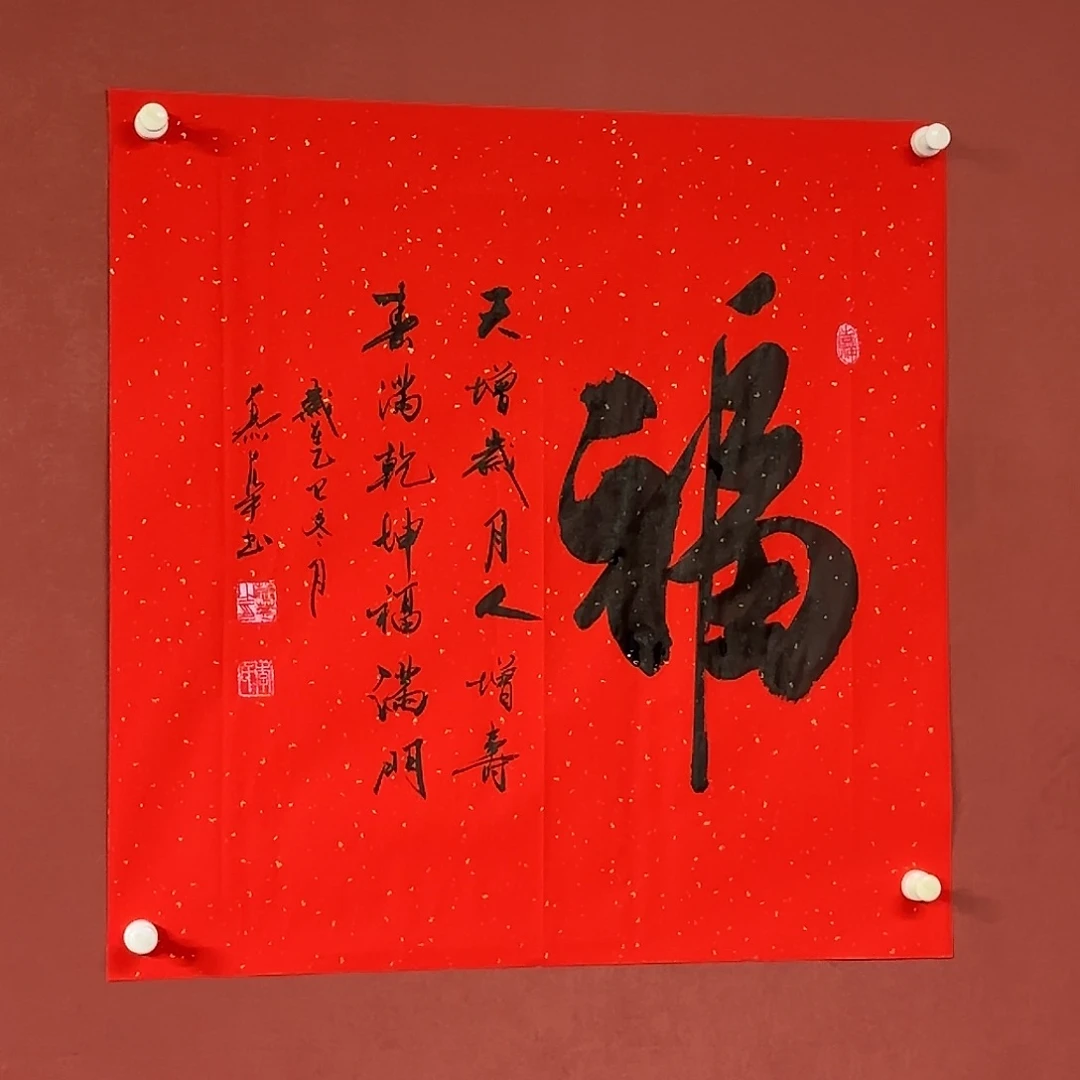 福
天增歲月人增壽
春满乾坤福满門
歲在乙巳冬月